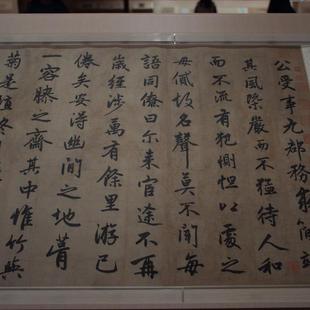 公受事九郡務
其風槩嚴而不猛待人和
而不流有犯惻怛以處之
毋俶故名聲莫不聞每
語同僚曰尔来官途不再
歲經涉萬有餘里游已
倦矣安得幽閒之地葺
一容膝之齋其中惟竹與
菊是